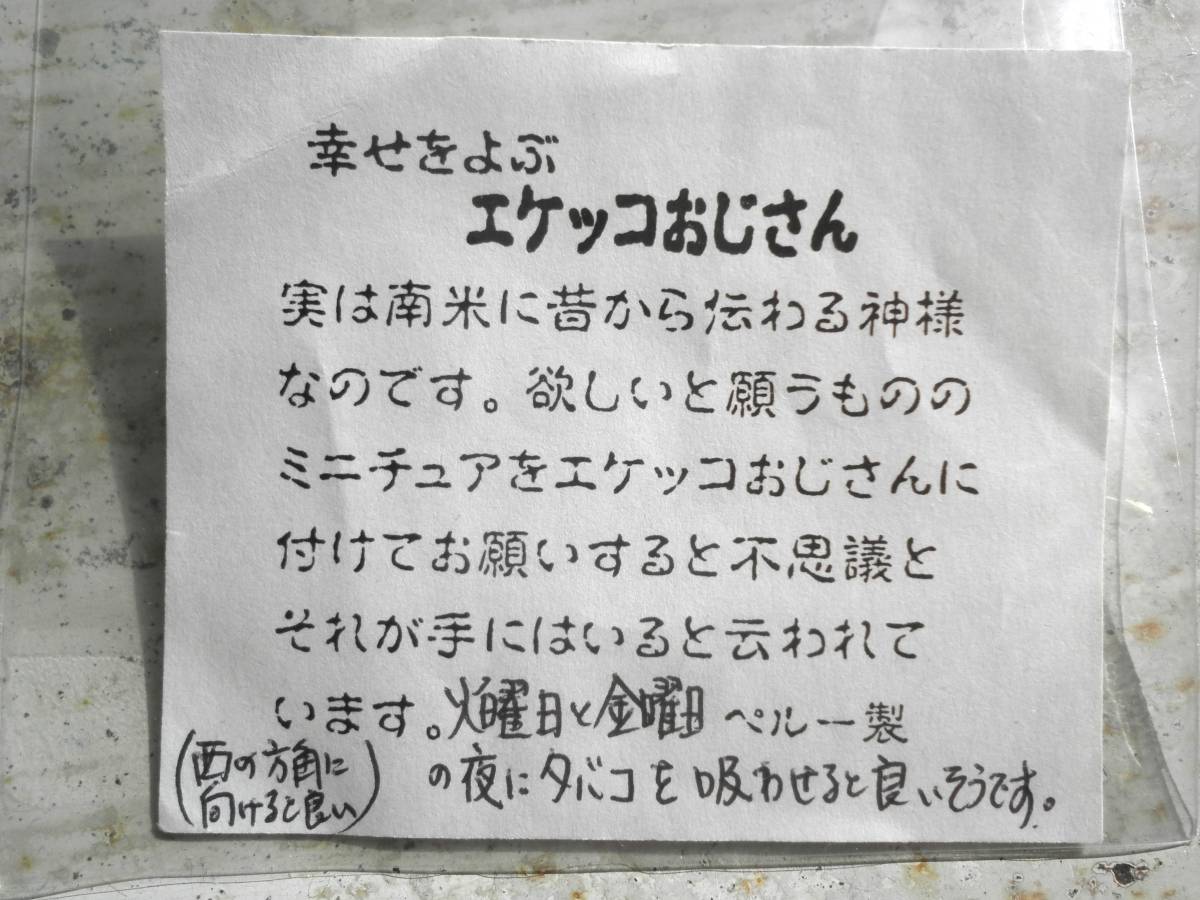 幸せをよぶ
エケッコおじさん
実は南米に昔から伝わる神様
なのです。欲しいと願うものの
ミニチュアをエケッコおじさんに
付けてお願いすると不思議と
それが手にはいると云われて
います。火曜日と金曜日 ペルー製
の夜にタバコを吸わせると良いそうです。
(西の方角に
向けると良い)